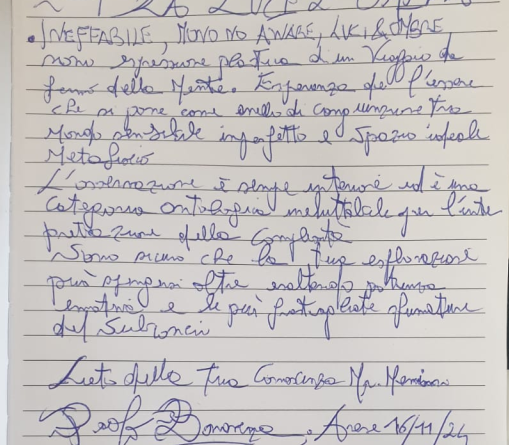 • INEFFABILE, MONO NO AWARE, LUCI & OMBRE
sono espressione plastica di un Viaggio da
fermo della Mente. Esperienza dell'essere
che si pone come anello di congiunzione tra
Mondo sensibile imperfetto e Spazio ideale
Metafisico
L'osservazione è sempre interiore ed è una
categoria ontologica ineluttabile per l'inter
pretazione della Complessità
Sono sicuro che la tua esplorazione
può spingersi oltre esaltando potenza
emotiva e le più frastagliate sfumature
del Subconscio
Lieto della tua Conoscenza Mr.
Prof. Arese 16/11/24